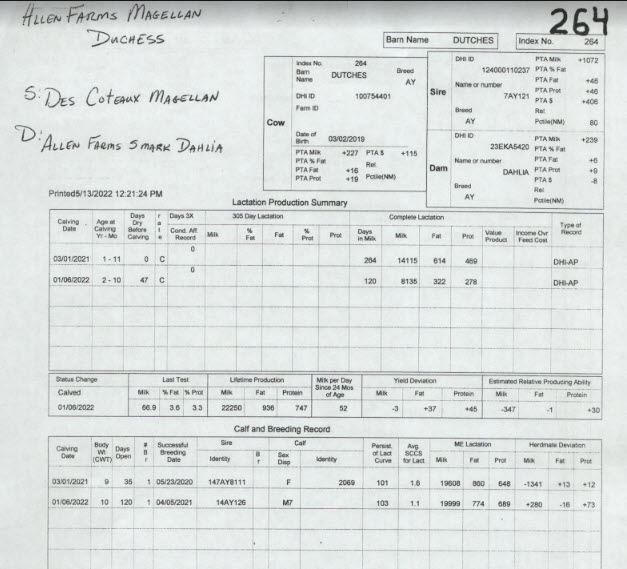 ALLEN FARMS MAGELLAN
DUCHESS
264
Barn Name DUTCHES Index No. 264
S: DES COTEAUX MAGELLAN
D: ALLEN FARMS SMARK DAHLIA
Cow
Index No. 264
Barn Name DUTCHES Breed AY
DHI ID 100754401
Farm ID
Date of Birth 03/02/2019
PTA Milk +227 PTA $ +115
PTA % Fat Rel
PTA Fat +16
PTA Prot +19 Pctile(NM)
Sire
DHI ID 124000110237
Name or number 7AY121
Breed AY
PTA Milk +1072
PTA % Fat
PTA Fat +46
PTA Prot +46
PTA $ +406
Rel
Pctile(NM) 80
Dam
DHI ID 23EKA5420
Name or number DAHLIA
Breed AY
PTA Milk +239
PTA % Fat
PTA Fat +6
PTA Prot +9
PTA $ -8
Rel
Pctile(NM)
Printed5/13/2022 12:21:24 PM
Lactation Production Summary
Calving Date Age at Calving Yr - Mo Days Dry Before Calving r a t e Days 3X Cond. Aff. Record 305 Day Lactation Milk % Fat Fat % Prot Prot Complete Lactation Days in Milk Milk Fat Prot Value Product Income Ovr Feed Cost Type of Record
0
03/01/2021 1 - 11 0 C 264 14115 614 469 DHI-AP
0
01/06/2022 2 - 10 47 C 120 8135 322 278 DHI-AP
Status Change Last Test Lifetime Production Milk per Day Since 24 Mos of Age Yield Deviation Estimated Relative Producing Ability
Calved Milk % Fat % Prot Milk Fat Protein Milk Fat Protein Milk Fat Protein
01/06/2022 66.9 3.6 3.3 22250 936 747 52 -3 +37 +45 -347 -1 +30
Calf and Breeding Record
Calving Date Body Wt (CWT) Days Open # B r Successful Breeding Date Sire Identity B r Calf Sex Disp Identity Persist. of Lact Curve Avg. SCCS for Lact. ME Lactation Milk Fat Prot Herdmate Deviation Milk Fat Prot
03/01/2021 9 35 1 05/23/2020 147AY8111 F 2069 101 1.6 19608 860 648 -1341 +13 +12
01/06/2022 10 120 1 04/05/2021 14AY126 M7 103 1.1 19999 774 689 +280 -16 +73